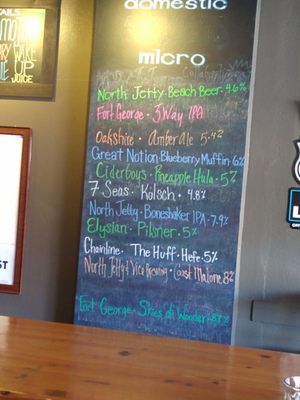 TAILS
JUICE
domestic
micro
North Jetty - Beach Beer - 4.6%
Fort George - 3 Way IPA
Oakshire - Amber Ale 5.4%
Great Notion - Blueberry Muffin - 6%
Ciderboys - Pineapple Hula - 5%
7 Seas - Kolsch - 4.8%
North Jetty - Boneshaker IPA - 7.9%
Elysian - Pilsner 5%
Chainline - The Huff - Hefe - 5%
North Jetty & Vice Brewing - Coast Malone 8%
Fort George - Skies of Wonder - 8.7%
ST